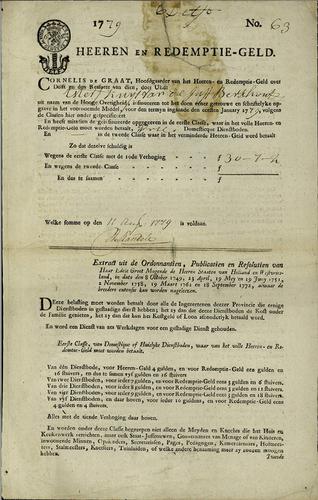 1779 No. 63
HEEREN EN REDEMPTIE-GELD.
CORNELIS DE GRAAT, Hoofdgaarder van het Heeren- en Redemptie-Geld over
Delft en den Ressorte van dien, doet
uit naam van de Hooge Overigheid,
opgave in het voorvoerende Model, voor den termyn ingaande den eersten January 177 volgens
de Clausen hier onder gespecificeert
En heeft misdien de opgegeven in de eerste Classe, waar in het volle Heeren- en
Redemptie-Geld moet worden betaalt Drie Domesticque Dienstboden.
En in de tweede Classe waar in het verminderde Heeren-Geld werd betaalt
Zo dat dezelve schuldig is
Wegens de eerste Classe met de 10de Verhoging f 30
En wegens de tweede Classe f
En dus te saamen f
Welke somme op den 11 Aug 1779 is voldaan.
Extract uit de Ordonnantien, Publicatien en Resolutien van
Haar Edele Groot Mogende de Heeren Staaten van Holland en Westvries-
land, in dato den 8 October 1749, 23 April, 19 Mey en 19 Juny 1751,
2 November 1758, 19 Maart 1761 en 18 September 1772, alwaar de
breedere extensie kan worden nagelezen.
Deze belasting moet worden betaalt door alle de Ingezetenen dezer Provincie die eenige
Dienstboden in gestadige dienst hebben; het zy dan die deeze Dienstboden de Kost onder
de Familie genieten, het zy dan dat hun Kostgeld of Loon afzonderlyk betaald word.
En word een Dienst van zes Werkdagen voor een gestadige Dienst gehouden.
Eerste Classe, van Domesticque of Huislyke Dienstboden, waar van het volle Heeren- en Re-
demtie-Geld moet worden betaalt.
Van één Dienstbode, voor Heeren-Geld 4 gulden, en voor Redemptie-Geld een gulden en
16 stuivers, en dus te samen vyf gulden en 16 stuivers.
Van twee Dienstboden, voor ieder zeven gulden, en voor Redemptie-Geld ieder 2 gulden en 8 stuiver.
Van drie Dienstboden, voor ieder 8 gulden, en voor Redemptie-Geld ieder 2 gulden en 18 stuiver.
Van vier Dienstboden, voor ieder 9 gulden, en voor Redemptie-Geld ieder 3 gulden en 8 stuivers.
Van vyf Dienstboden, en daar en boven, voor ieder 10 gulden, en voor Redemptie-Geld een
ieder 4 gulden en 4 stuivers.
Alles met de tiende Verhoging daar boven.
En worden onder deeze Classe begrepen niet alleen de Meyden en Knechts die het Huis en
Keukenwerk verrichten, maar ook Staat-Juffrouwen, Gouvernantes van Menage of van Kinderen,
inwoonende Minnen, Opzienders, Secretarissen, Pages, Pedagogen, Kamerdienaars, Hofmees-
ters, Stalmeesters, Koetsiers, Tuinluiden, of welke andere benaaming meer zy zouden mogen
hebben.
Tweede